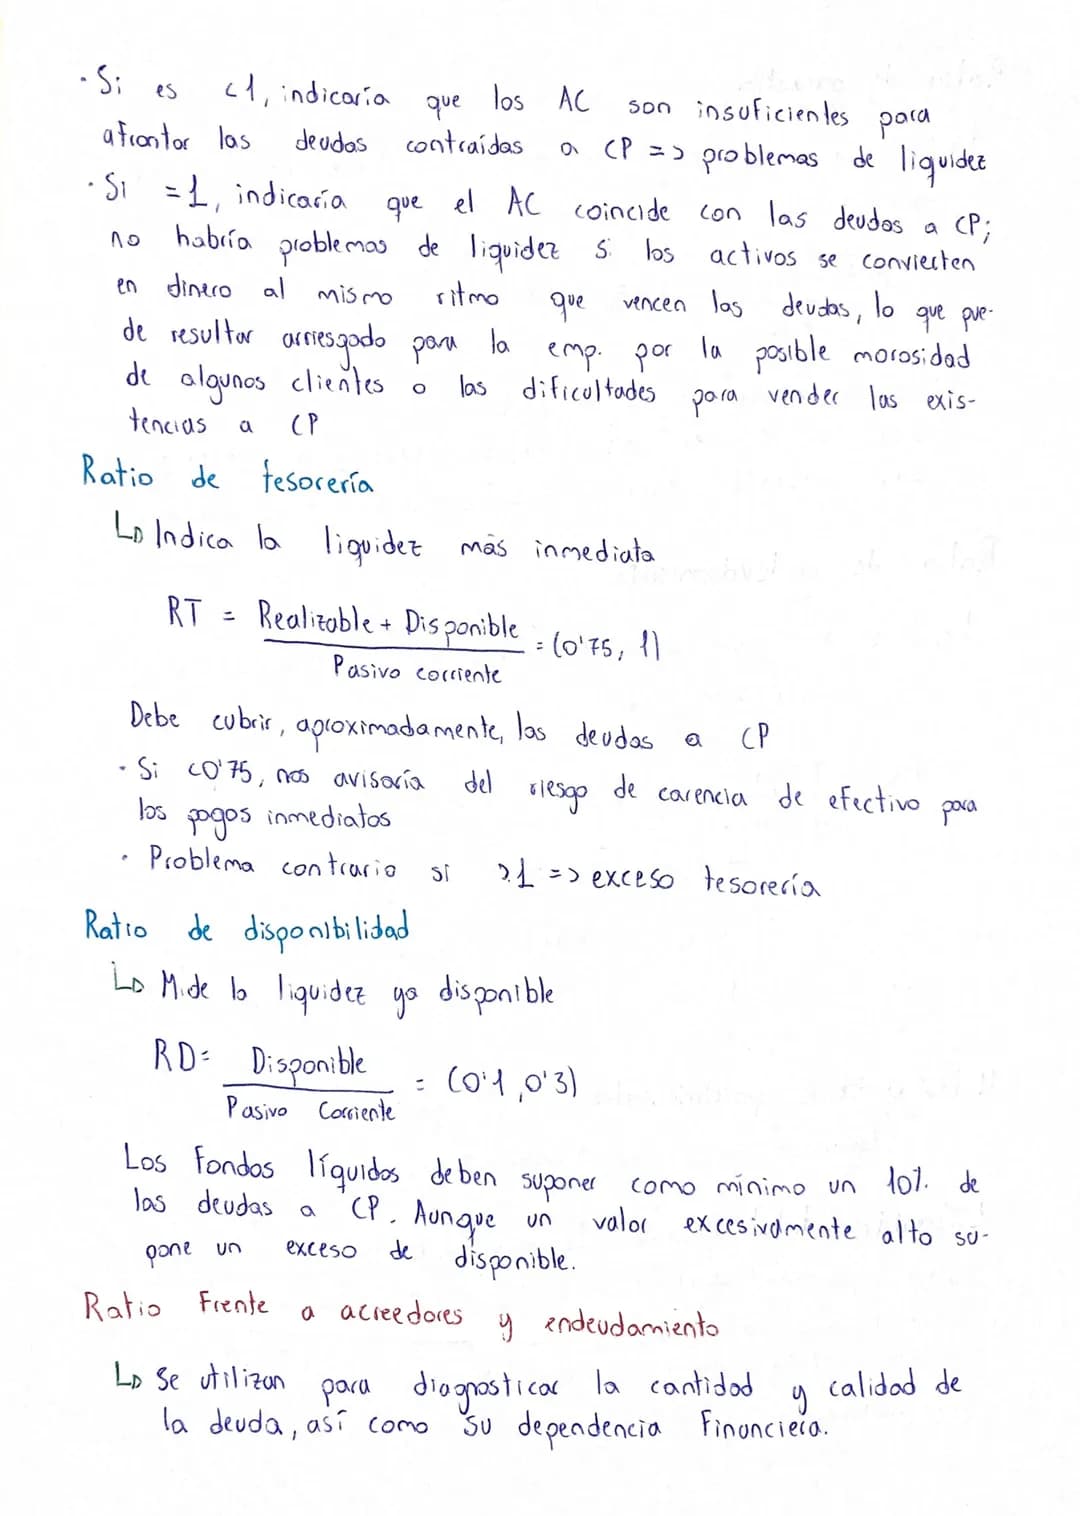 · Si es <1, indicaría que los AC son insuficientes para
afrontar las deudas contraídas a CP => problemas de liquidez
· Si =1, indicaría que el AC coincide con las deudas a CP;
no habría problemas de liquidez si los activos se convierten
en dinero al mismo ritmo que vencen las deudas, lo que pue-
de resultar arriesgado para la emp. por la posible morosidad
de algunos clientes o las dificultades para vender las exis-
tencias a CP
Ratio de tesorería
↳ Indica la liquidez más inmediata
RT = Realizable + Disponible / Pasivo corriente = (0'75, 1)
Debe cubrir, aproximadamente, las deudas a CP
· Si <0'75, nos avisaría del riesgo de carencia de efectivo para
los pagos inmediatos
· Problema contrario si >1 => exceso tesorería
Ratio de disponibilidad
↳ Mide la liquidez ya disponible
RD = Disponible / Pasivo Corriente = (0'1, 0'3)
Los fondos líquidos deben suponer como mínimo un 10% de
las deudas a CP. Aunque un valor excesivamente alto su-
pone un exceso de disponible.
Ratio Frente a acreedores y endeudamiento
↳ Se utilizan para diagnosticar la cantidad y calidad de
la deuda, así como su dependencia Financiera.